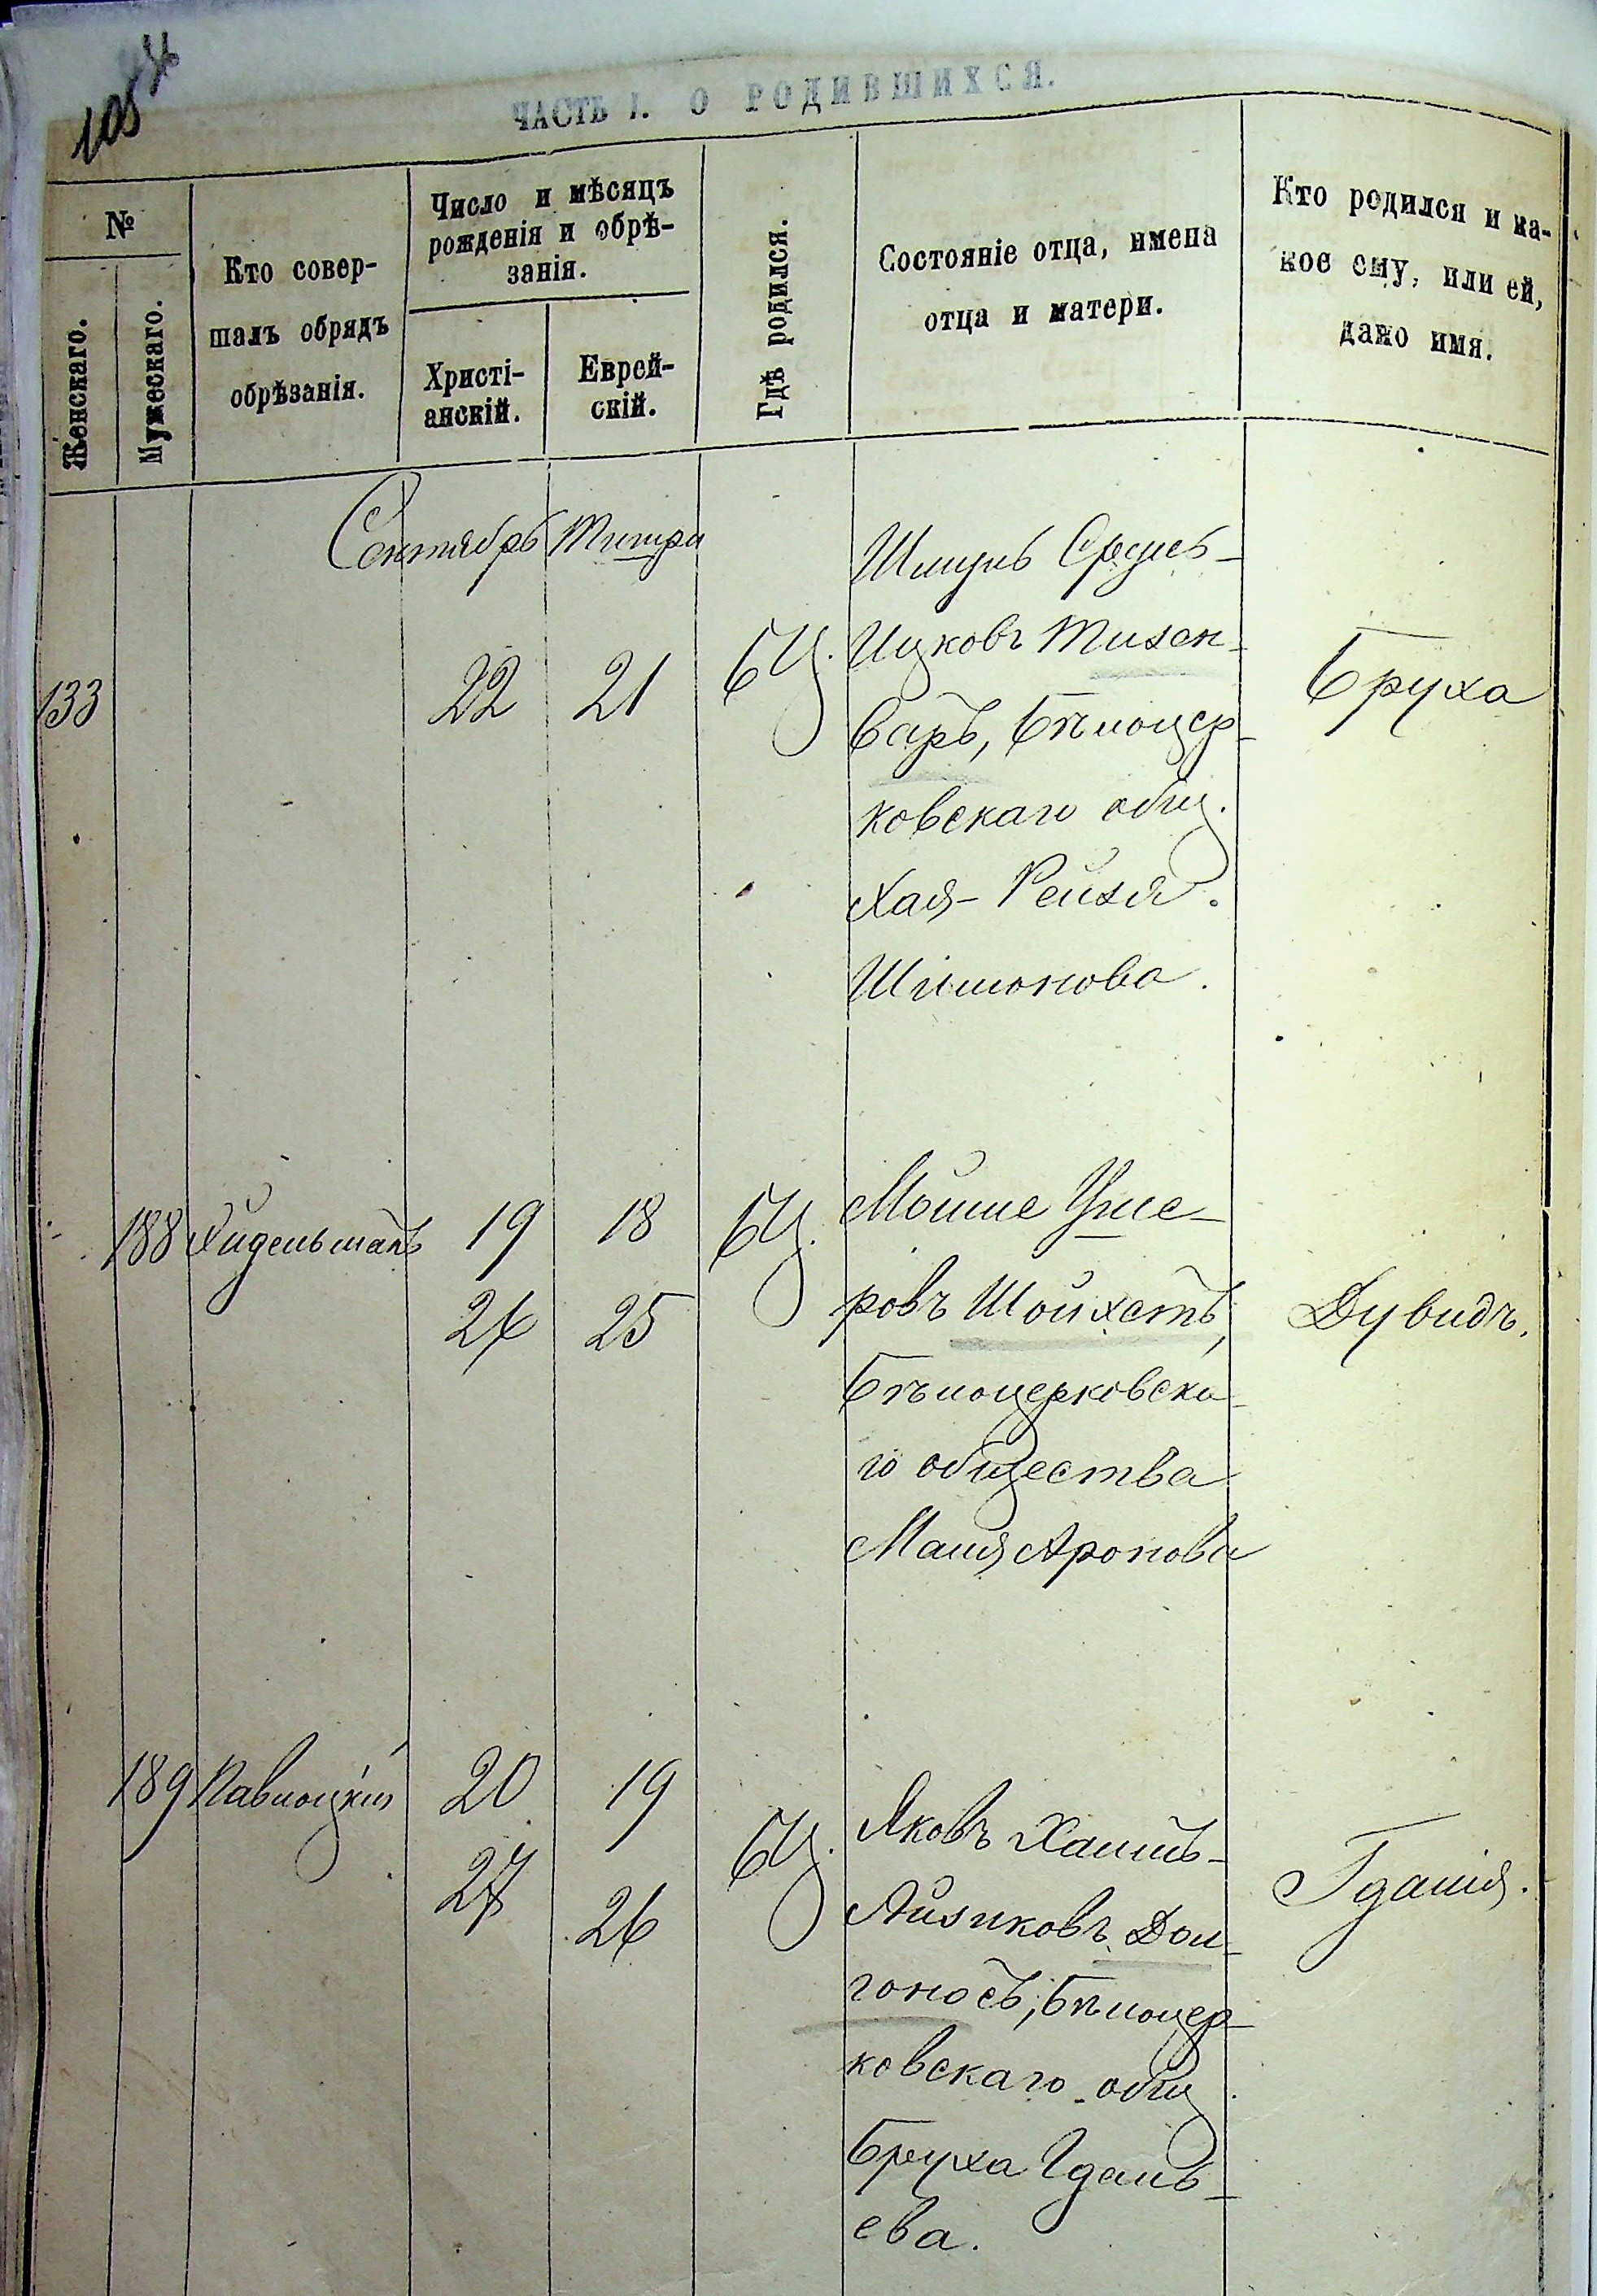 105
ЧАСТЬ I. О РОДИВШИХСЯ.
№
Женскаго.
Мужескаго.
Кто совер-
шалъ обрядъ
обрѣзанія.
Число и мѣсяцъ
рожденія и обрѣ-
занія.
Христі-
анскій.
Еврей-
скій.
Гдѣ родился.
Состояніе отца, имена
отца и матери.
Кто родился и ка-
кое ему, или ей,
дано имя.
Сентябрь Тишри
133
22
21
БЦ.
Шмуль Сруль-
Ицковъ Тизен-
варъ, Бѣлоцер-
ковскаго общ.
Хая-Рейзя
Шимонова.
Бруха
188
19
18
26
25
БЦ.
Мойше Уше-
ровъ Шойхетъ,
Бѣлоцерковска-
го общества
Маня Аронова
Дувидъ.
189 Паволоцкій
20
19
27
26
БЦ.
Яковъ Хаимъ-
Айзиковъ Дол-
гоносъ, Бѣлоцер-
ковскаго общ.
Бруха Гдаль-
ева.
Гдалія.